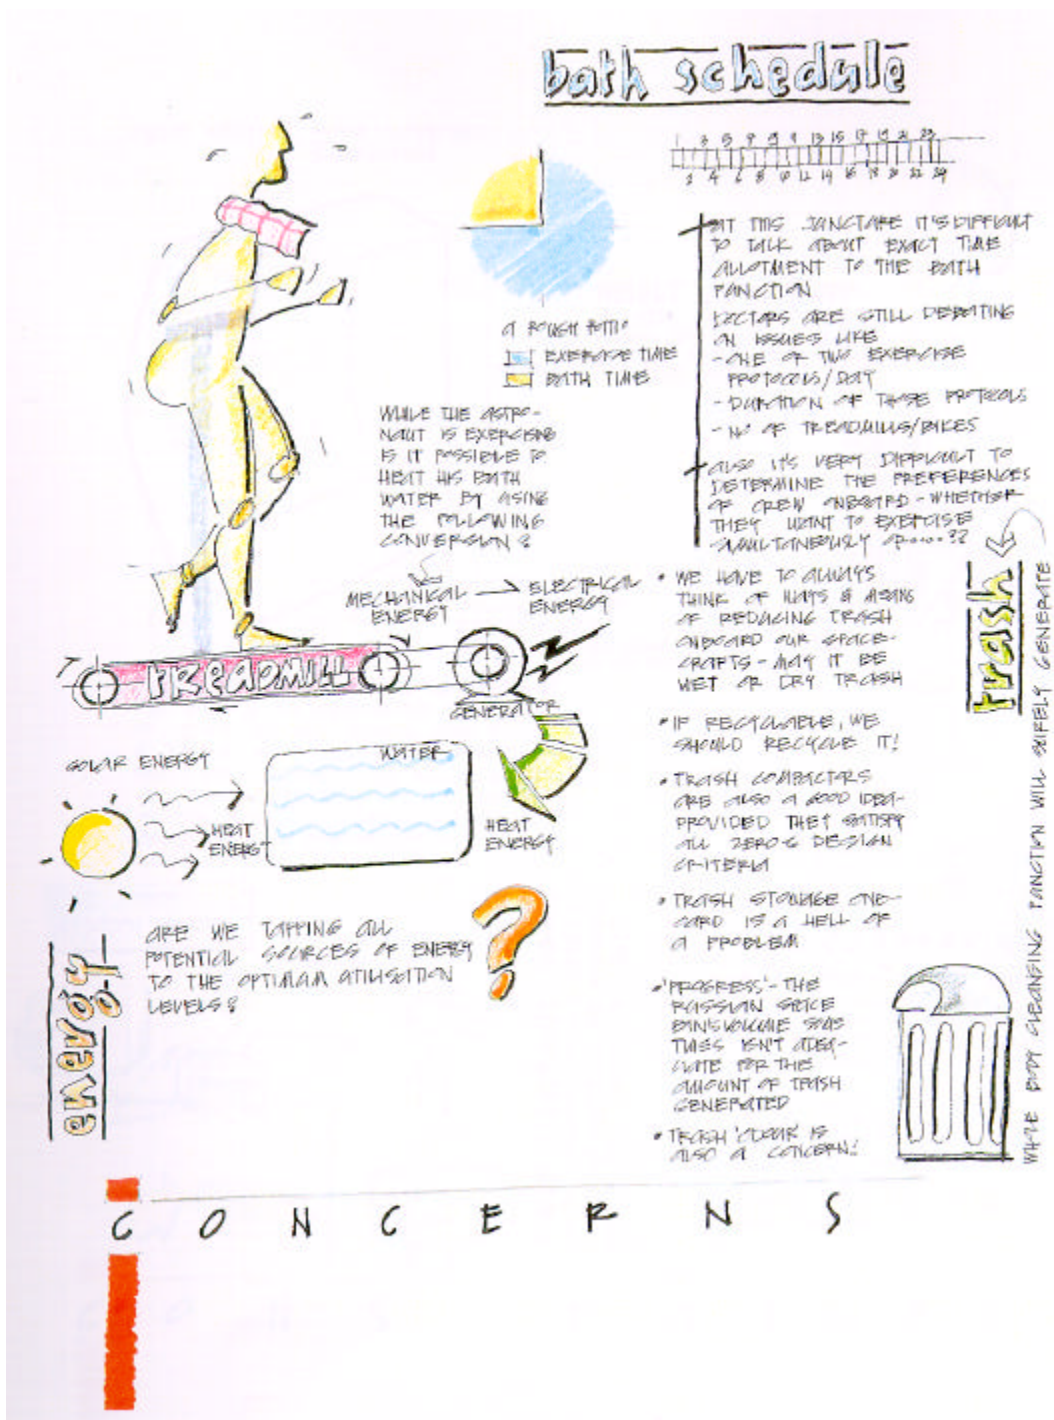 bath schedule
1 3 5 7 9 11 13 15 17 19 21 23
2 4 6 8 10 12 14 16 18 20 22 24
AT THIS JUNCTURE IT'S DIFFICULT
TO TALK ABOUT EXACT TIME
ALLOTMENT TO THE BATH
FUNCTION
DOCTORS ARE STILL DEBATING
ON ISSUES LIKE
- ONE OR TWO EXERCISE
PROTOCOLS/DAY
- DURATION OF THOSE PROTOCOLS
- NO OF TREADMILLS/BIKES
ALSO IT'S VERY DIFFICULT TO
DETERMINE THE PREFERENCES
OF CREW ONBOARD - WHETHER
THEY WANT TO EXERCISE
SIMULTANEOUSLY OR.....??
A ROUGH RATIO
EXERCISE TIME
BATH TIME
WHILE THE ASTRO-
NAUT IS EXERCISING
IS IT POSSIBLE TO
HEAT HIS BATH
WATER BY USING
THE FOLLOWING
CONVERSION?
MECHANICAL ENERGY → ELECTRICAL ENERGY
TREADMILL
GENERATOR
SOLAR ENERGY
HEAT
ENERGY
WATER
HEAT
ENERGY
energy
ARE WE TAPPING ALL
POTENTIAL SOURCES OF ENERGY
TO THE OPTIMUM UTILISATION
LEVELS?
?
trash
WHOLE BODY CLEANSING FUNCTION WILL SURELY GENERATE
• WE HAVE TO ALWAYS
THINK OF WAYS & MEANS
OF REDUCING TRASH
ONBOARD OUR SPACE-
CRAFTS - MAY IT BE
WET OR DRY TRASH
• IF RECYCLABLE, WE
SHOULD RECYCLE IT!
• TRASH COMPACTORS
ARE ALSO A GOOD IDEA-
PROVIDED THEY SATISFY
ALL ZERO G DESIGN
CRITERIA
• TRASH STOWAGE ONB-
OARD IS A HELL OF
A PROBLEM
• 'PROGRESS' - THE
RUSSIAN SPACE
BIN'S VOLUME SOME
TIMES ISN'T ADEQ-
UATE FOR THE
AMOUNT OF TRASH
GENERATED
• TRASH 'ODOUR' IS
ALSO A CONCERN!
CONCERNS